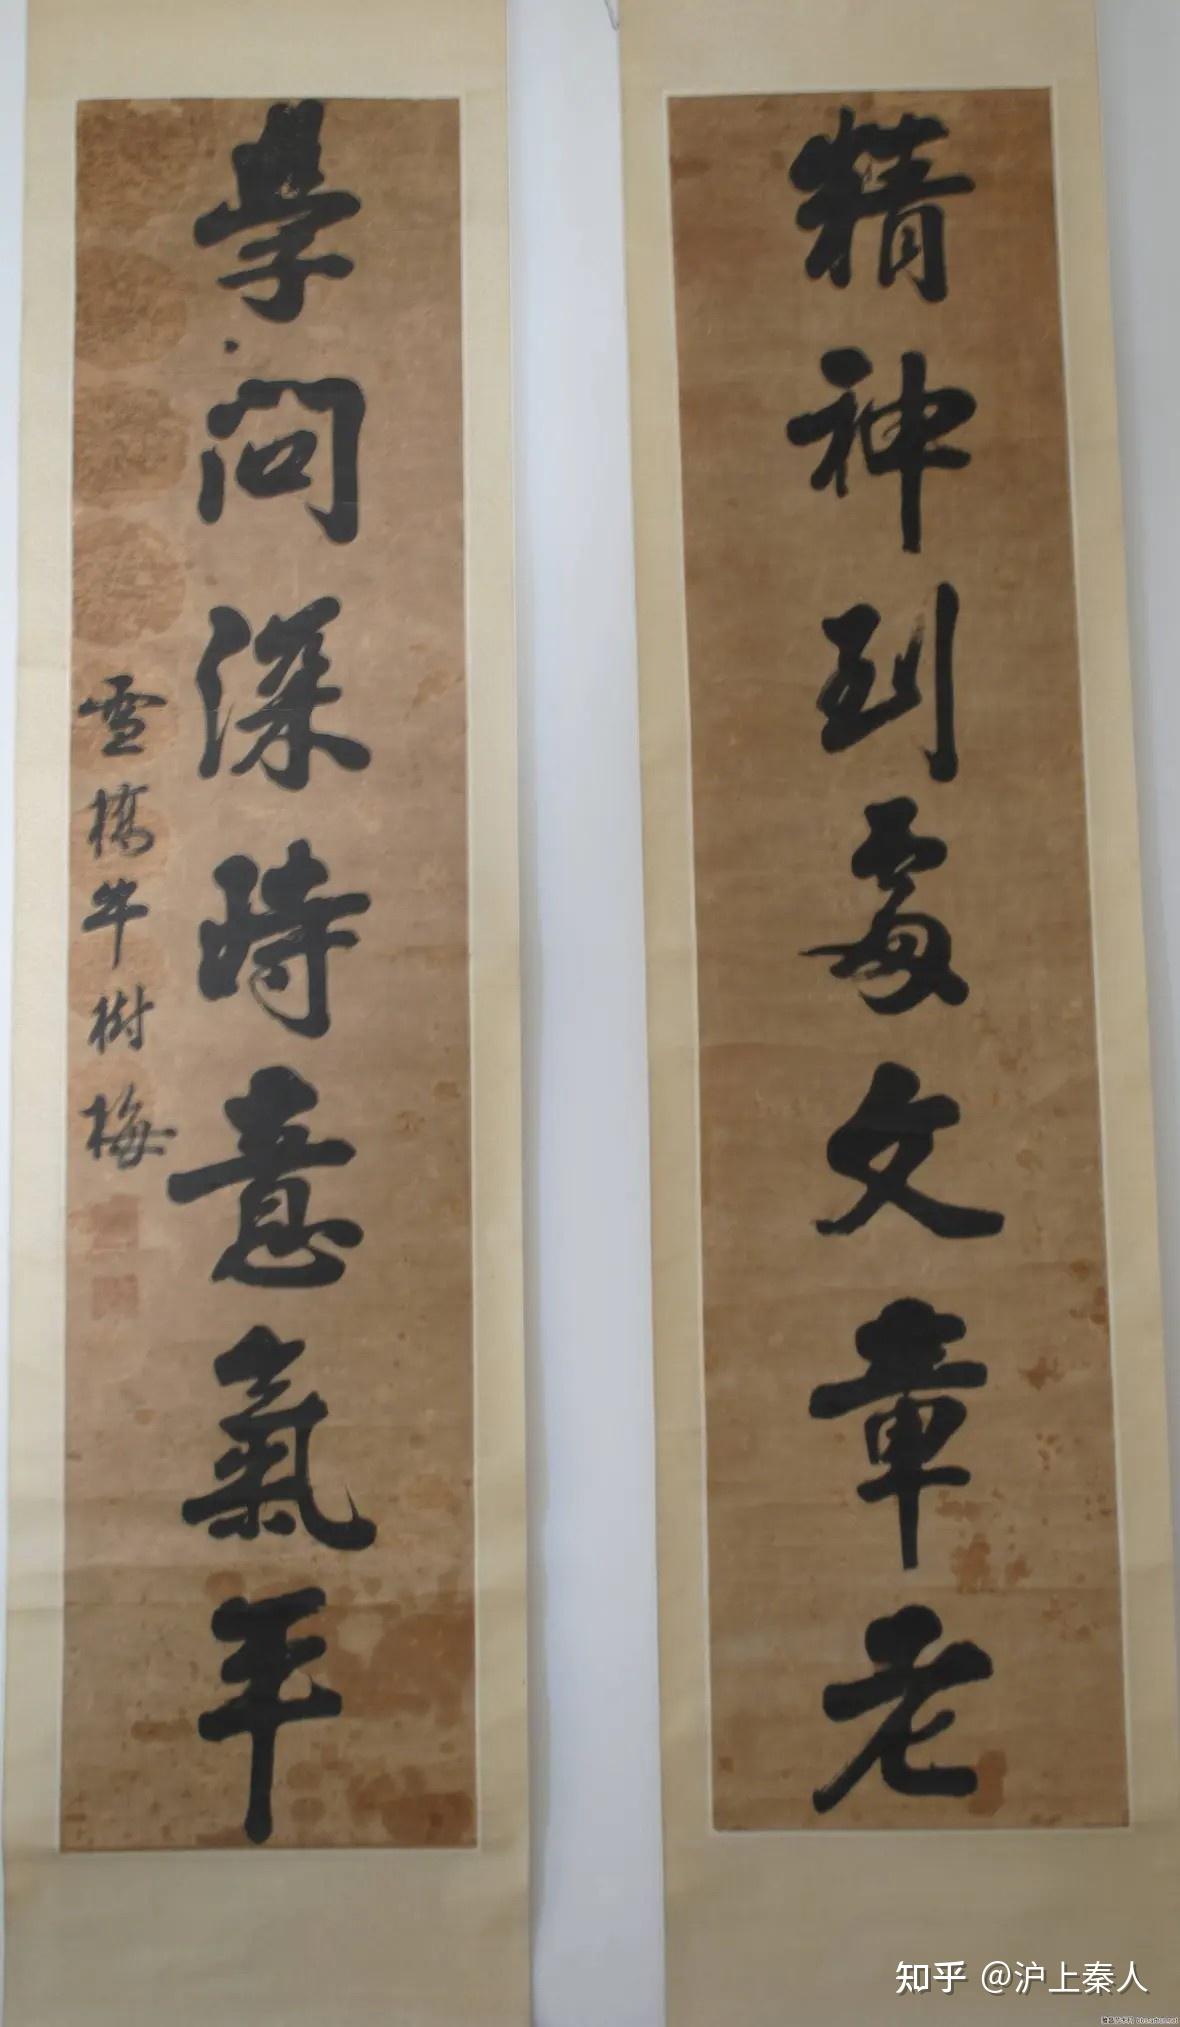 精神到處文章老
學問深時意氣平
雪樵牛樹梅
知乎 @沪上秦人